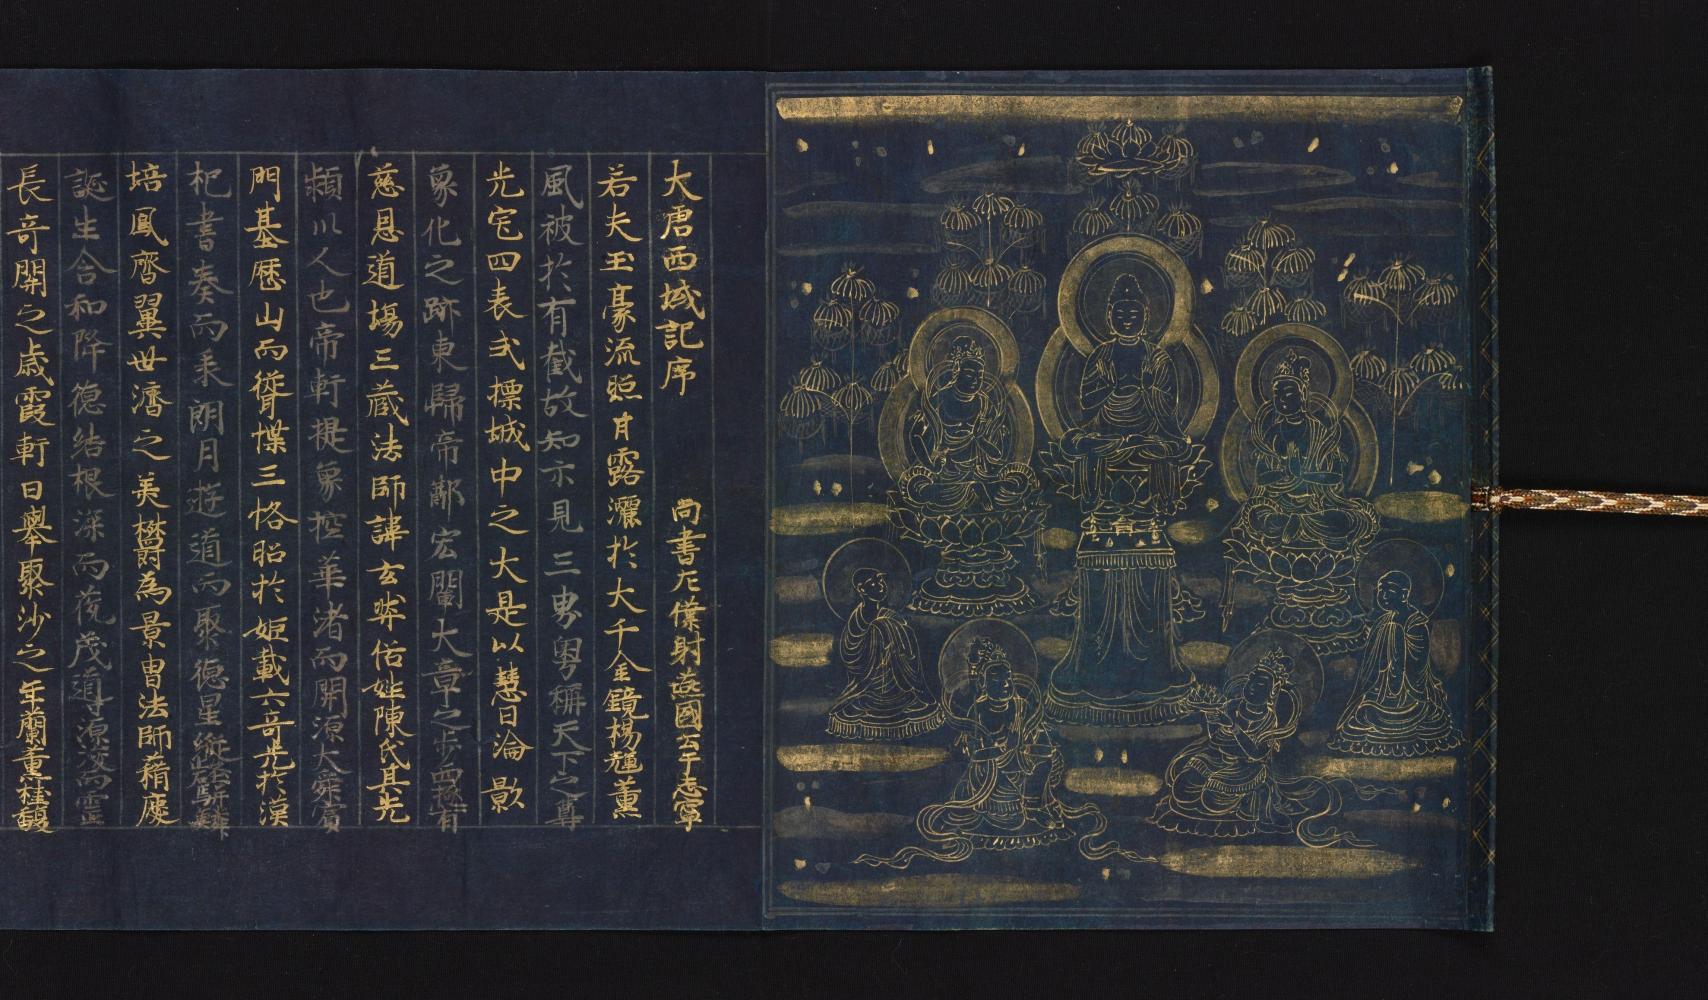 大唐西域記序 尚書左僕射燕國公于志寧
若夫玉豪流照甘露灑於大千金鏡楊輝薫
風被於有截故知示見三界粤稱天下之尊
光宅四表式摽域中之大是以慧日淪影
像化之跡東歸帝猷宏闡大章之步西極有
慈恩道場三蔵法師諱玄奘俗姓陳氏其先
潁川人也帝軒提象控華渚而開源大舜賓
門基歴山而聳構三恪照於姫載六奇光於漢
祀書奏而承朗月遊道而聚徳星縱壑駢鱗
培風齊翼世濟之美欝為景胄法師藉慶
誕生含和降徳結根深而茂導源浚而霊
長奇開之歳霞軒日舉聚沙之年蘭薫桂馥